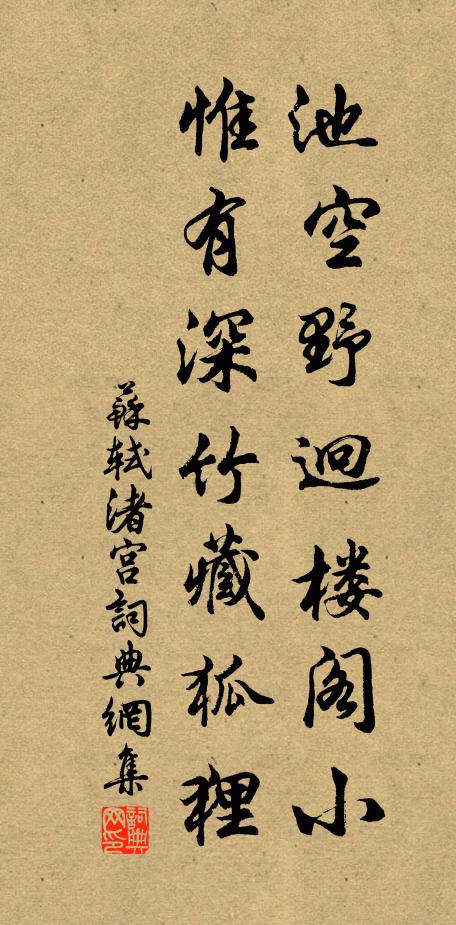 池空野迴楼阁小
惟有深竹藏狐狸
蘇軾渚宫詞典網集
詞典网印